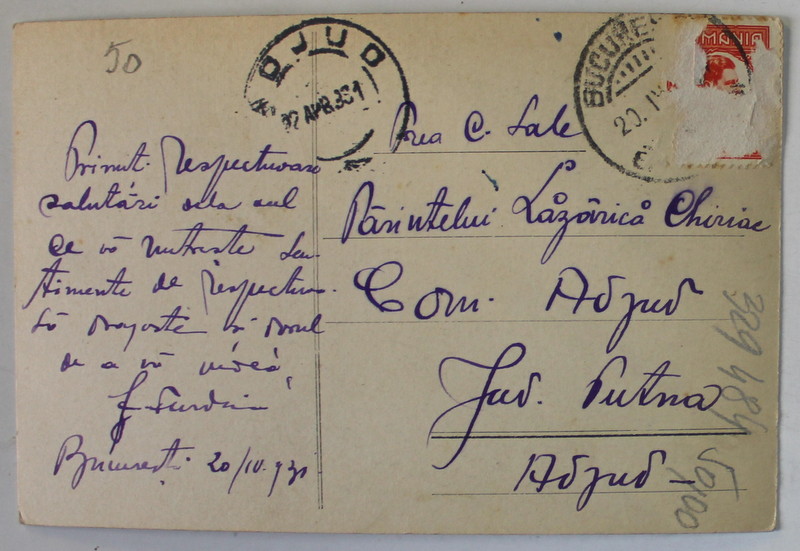 50
ADJUD
22 APR. 35
BUCUREȘ
20. IV
ROMANIA
Primiti Respectuoase
salutări dela cel
ce vă nutrește sen
timente de respectuoa
să dragoste și dorul
de a vă vedea,
București 20/IV.
Prea C. Sale
Părintelui Lăzărică Chiriac
Com. Adjud
Jud. Putna
Adjud -
329484
50,00